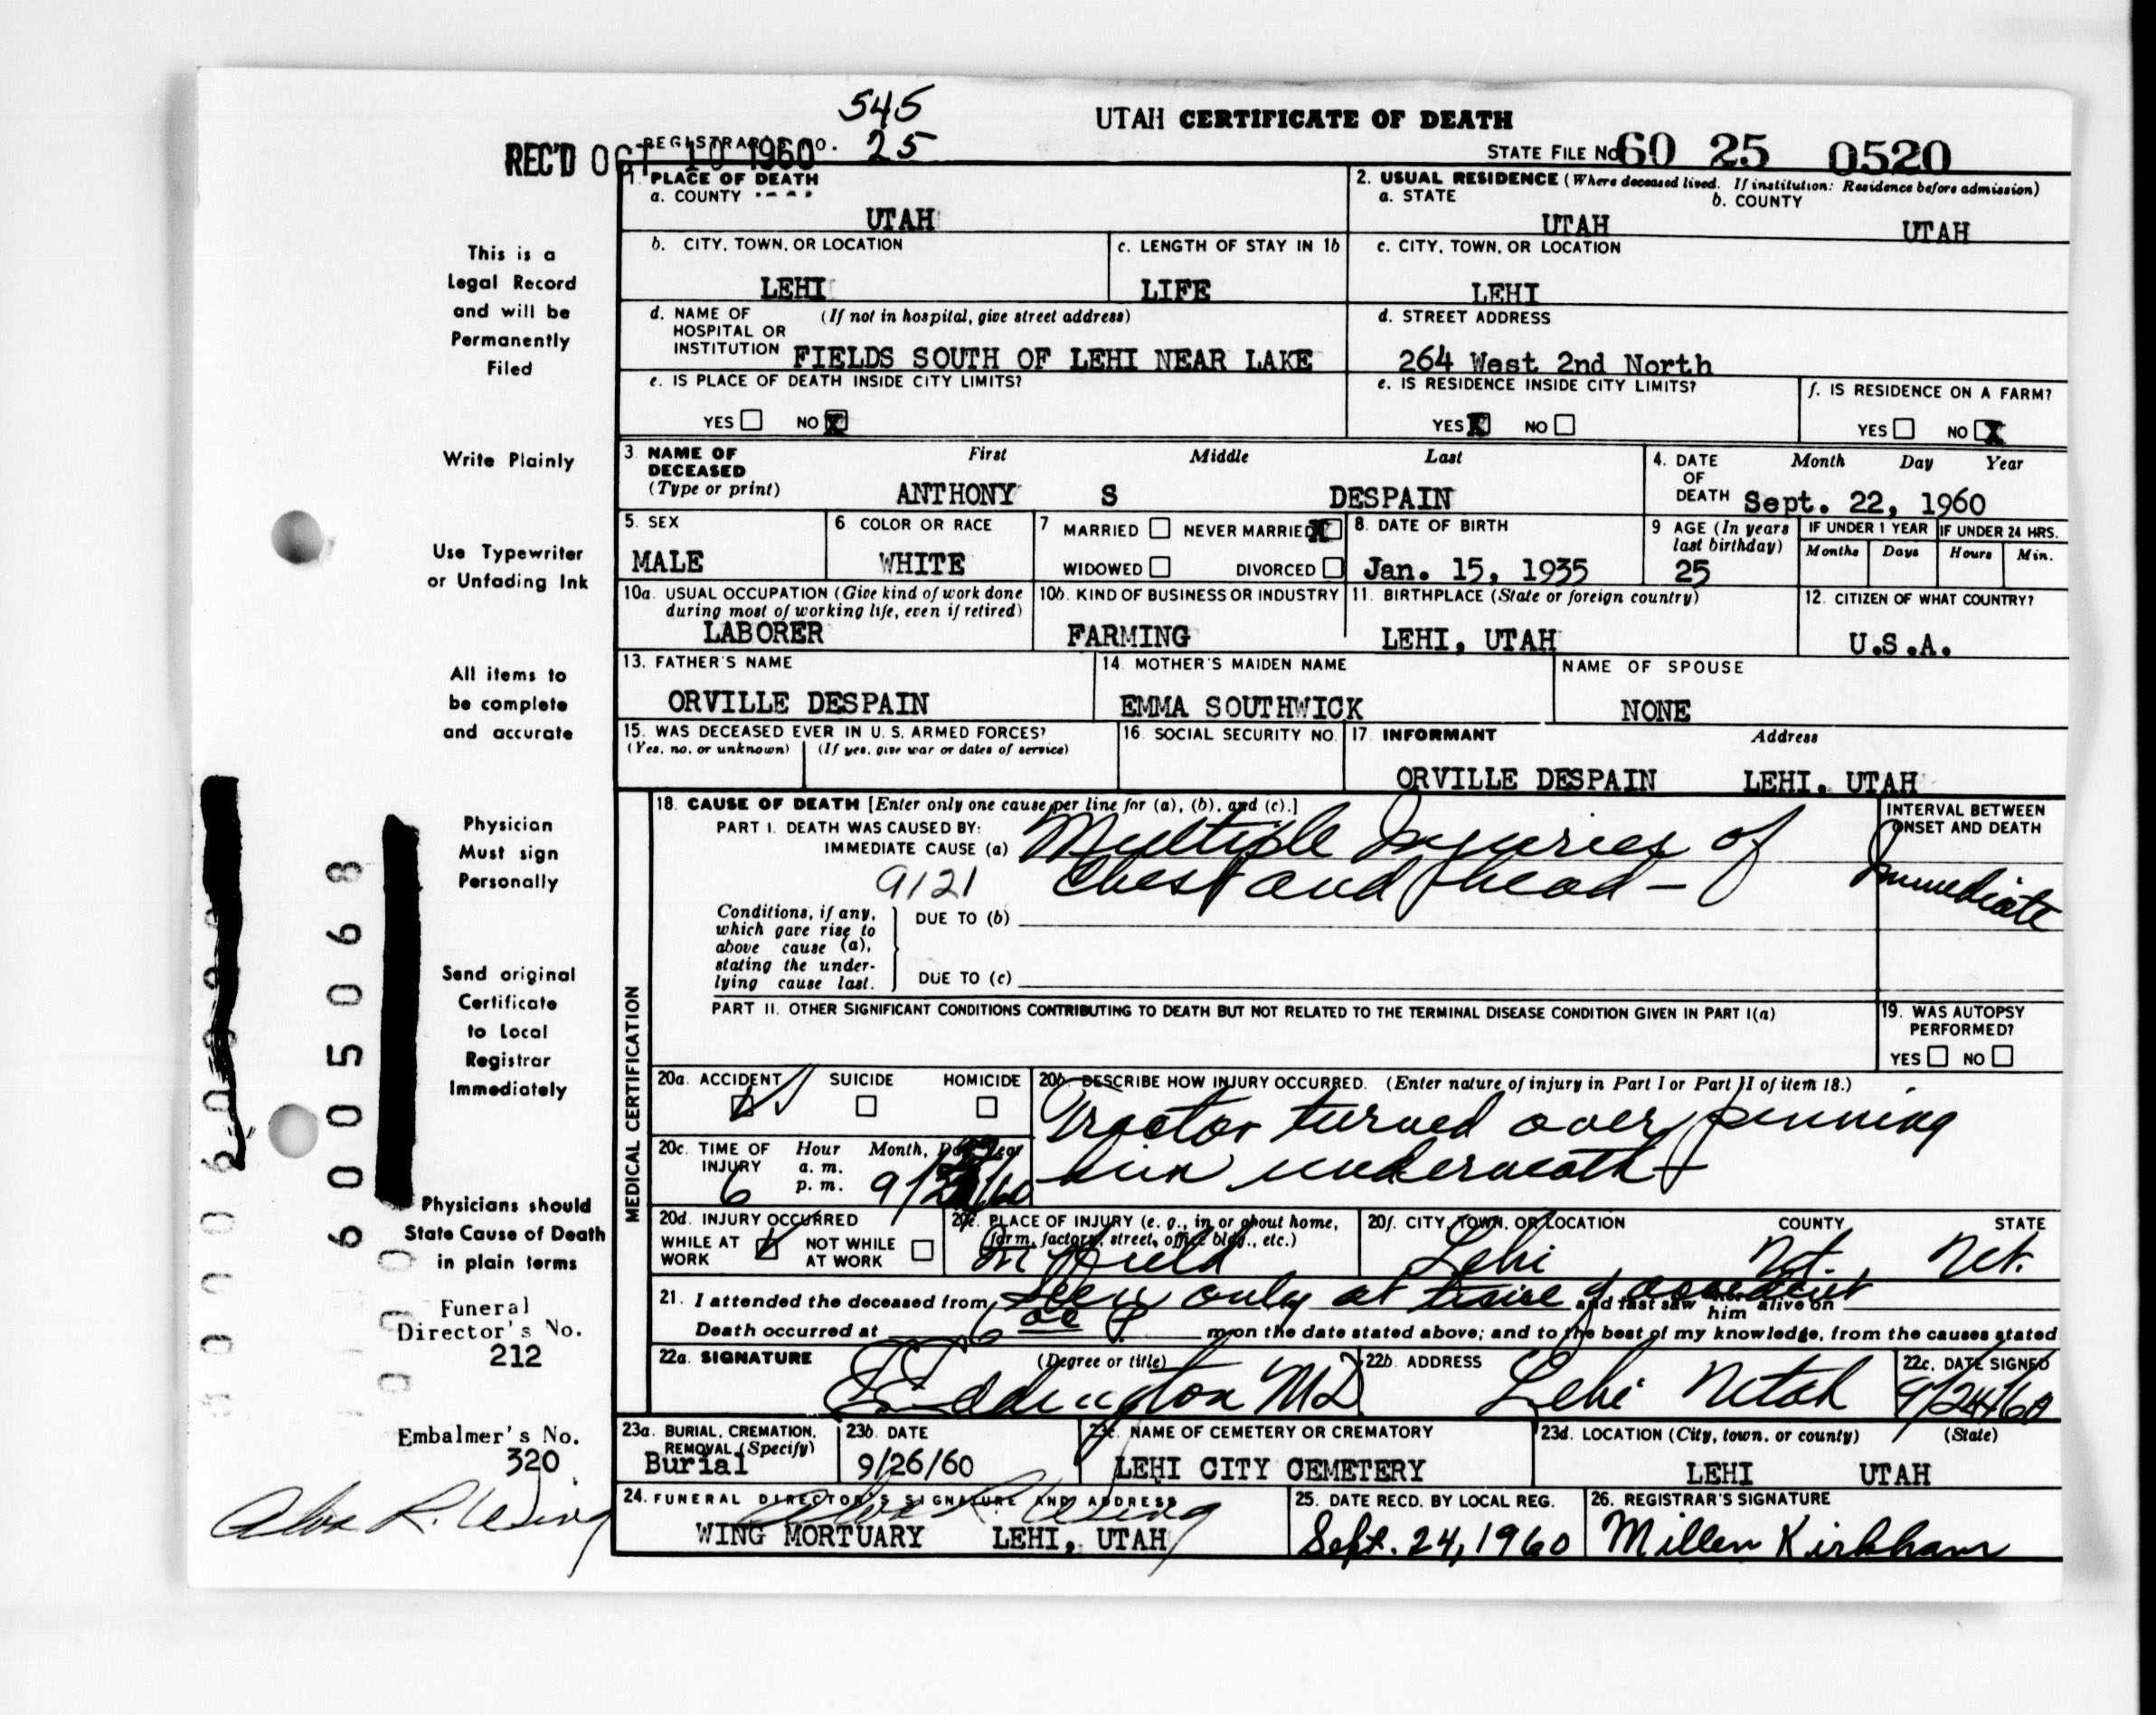 545
UTAH CERTIFICATE OF DEATH
REC'D OCT 10 1960 REGISTRAR'S NO. 25
STATE FILE No 60 25 0520
1. PLACE OF DEATH
a. COUNTY
UTAH
2. USUAL RESIDENCE (Where deceased lived. If institution: Residence before admission)
a. STATE b. COUNTY
UTAH UTAH
b. CITY, TOWN, OR LOCATION
LEHI
c. LENGTH OF STAY IN 1b
LIFE
c. CITY, TOWN, OR LOCATION
LEHI
d. NAME OF (If not in hospital, give street address)
HOSPITAL OR
INSTITUTION FIELDS SOUTH OF LEHI NEAR LAKE
d. STREET ADDRESS
264 West 2nd North
e. IS PLACE OF DEATH INSIDE CITY LIMITS?
YES NO X
e. IS RESIDENCE INSIDE CITY LIMITS?
YES X NO
f. IS RESIDENCE ON A FARM?
YES NO X
3. NAME OF DECEASED (Type or print)
First Middle Last
ANTHONY S DESPAIN
4. DATE OF DEATH Month Day Year
Sept. 22, 1960
5. SEX
MALE
6. COLOR OR RACE
WHITE
7 MARRIED NEVER MARRIED X
WIDOWED DIVORCED
8. DATE OF BIRTH
Jan. 15, 1935
9 AGE (In years last birthday)
25
IF UNDER 1 YEAR IF UNDER 24 HRS.
Months Days Hours Min.
10a. USUAL OCCUPATION (Give kind of work done
during most of working life, even if retired)
LABORER
10b. KIND OF BUSINESS OR INDUSTRY
FARMING
11. BIRTHPLACE (State or foreign country)
LEHI, UTAH
12. CITIZEN OF WHAT COUNTRY?
U.S.A.
13. FATHER'S NAME
ORVILLE DESPAIN
14. MOTHER'S MAIDEN NAME
EMMA SOUTHWICK
NAME OF SPOUSE
NONE
15. WAS DECEASED EVER IN U. S. ARMED FORCES?
(Yes, no, or unknown) (If yes, give war or dates of service)
16. SOCIAL SECURITY NO.
17. INFORMANT Address
ORVILLE DESPAIN LEHI, UTAH
MEDICAL CERTIFICATION
18. CAUSE OF DEATH [Enter only one cause per line for (a), (b), and (c).]
PART I. DEATH WAS CAUSED BY:
IMMEDIATE CAUSE (a) Multiple Injuries of
9121 Chest and head -
INTERVAL BETWEEN
ONSET AND DEATH
Immediate
Conditions, if any,
which gave rise to
above cause (a),
stating the under-
lying cause last.
DUE TO (b)
DUE TO (c)
PART II. OTHER SIGNIFICANT CONDITIONS CONTRIBUTING TO DEATH BUT NOT RELATED TO THE TERMINAL DISEASE CONDITION GIVEN IN PART I(a)
19. WAS AUTOPSY
PERFORMED?
YES NO
20a. ACCIDENT SUICIDE HOMICIDE
20b. DESCRIBE HOW INJURY OCCURRED. (Enter nature of injury in Part I or Part II of item 18.)
Tractor turned over pinning
him underneath
20c. TIME OF INJURY Hour Month, Day, Year
a. m.
p. m.
6 9/ /60
20d. INJURY OCCURRED
WHILE AT WORK NOT WHILE AT WORK
20e. PLACE OF INJURY (e. g., in or about home,
farm, factory, street, office bldg., etc.)
In field
20f. CITY, TOWN, OR LOCATION COUNTY STATE
Lehi Ut. Ut.
21. I attended the deceased from Seen only at time of accident and last saw him alive on
Death occurred at 6 P. m on the date stated above; and to the best of my knowledge, from the causes stated
22a. SIGNATURE (Degree or title)
Eddington MD
22b. ADDRESS
Lehi Utah
22c. DATE SIGNED
9/24/60
23a. BURIAL, CREMATION,
REMOVAL (Specify)
Burial
23b. DATE
9/26/60
23c. NAME OF CEMETERY OR CREMATORY
LEHI CITY CEMETERY
23d. LOCATION (City, town, or county) (State)
LEHI UTAH
24. FUNERAL DIRECTOR'S SIGNATURE AND ADDRESS
Alva R. Wing
WING MORTUARY LEHI, UTAH
25. DATE RECD. BY LOCAL REG.
Sept. 24, 1960
26. REGISTRAR'S SIGNATURE
Millen Kirkham
This is a
Legal Record
and will be
Permanently
Filed
Write Plainly
Use Typewriter
or Unfading Ink
All items to
be complete
and accurate
Physician
Must sign
Personally
Send original
Certificate
to Local
Registrar
Immediately
Physicians should
State Cause of Death
in plain terms
Funeral
Director's No.
212
Embalmer's No.
320
Alva R. Wing
6005068